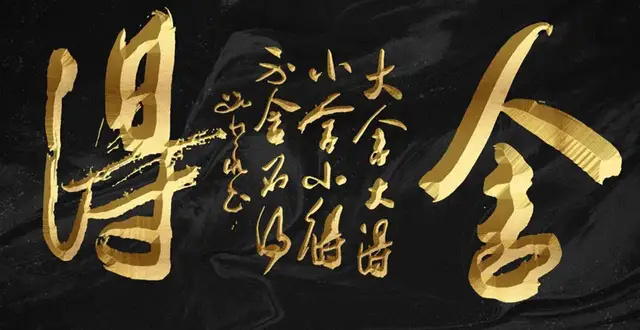 舍
得
大舍大得
小舍小得
不舍不得